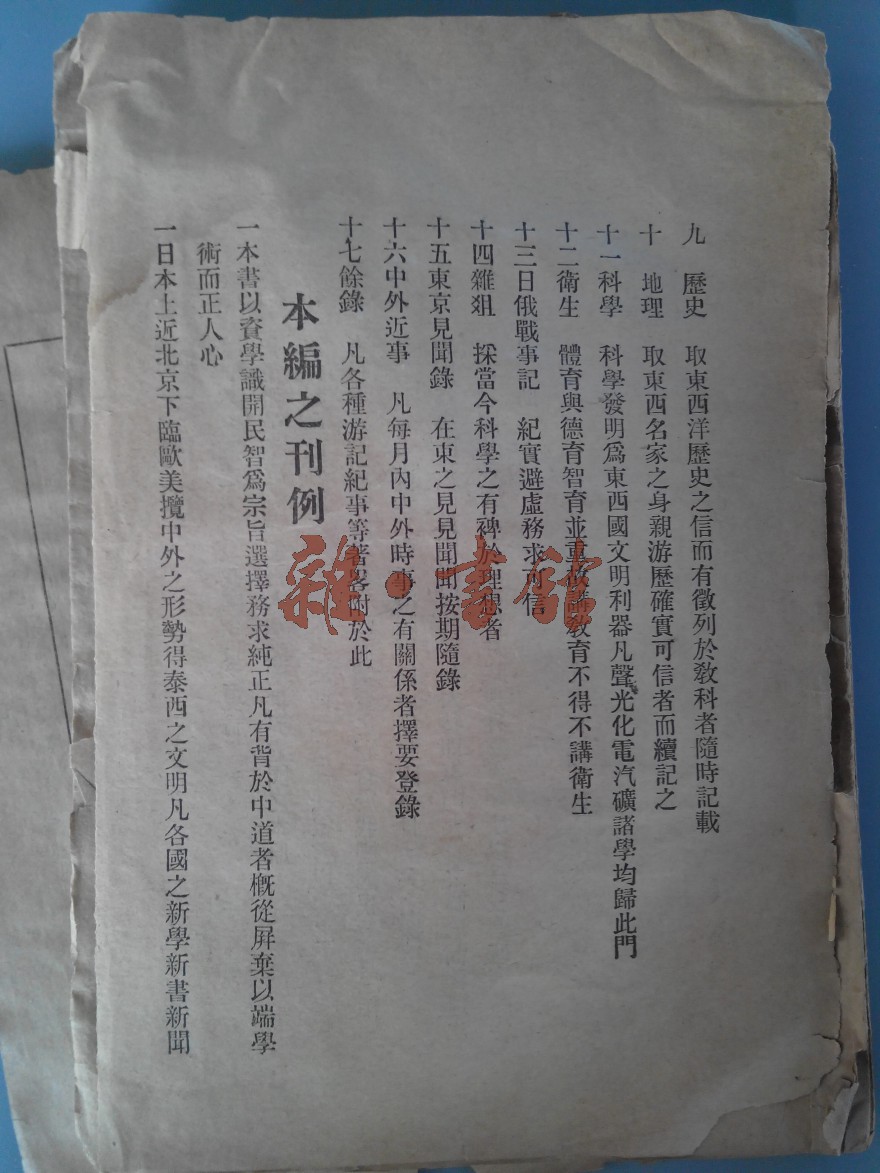 九　歷史　取東西洋歷史之信而有徵列於敎科者隨時記載
十　地理　取東西名家之身親游歷確實可信者而續記之
十一科學　科學發明爲東西國文明利器凡聲光化電汽礦諸學均歸此門
十二衛生　體育與德育智育並重故講敎育不得不講衛生
十三日俄戰事記　紀實避虛務求可信
十四雜俎　採當今科學之有裨於理想者
十五東京見聞錄　在東之見見聞聞按期隨錄
十六中外近事　凡每月內中外時事之有關係者擇要登錄
十七餘錄　凡各種游記紀事等著畧附於此
本編之刊例
一本書以資學識開民智爲宗旨選擇務求純正凡有背於中道者槪從屏棄以端學
術而正人心
一日本上近北京下臨歐美攬中外之形勢得泰西之文明凡各國之新學新書新聞
雜·書館